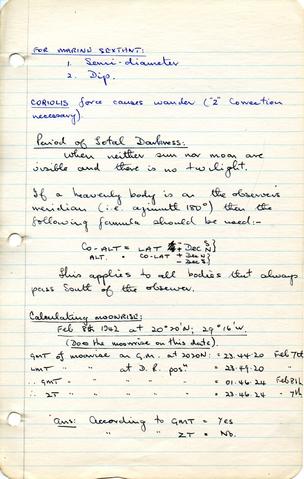 FOR MARINE SEXTANT:
1. Semi-diameter
2. Dip.
CORIOLIS force causes wander ("Z" Correction
necessary).
Period of Total Darkness:
When neither sun nor moon are
visible and there is no twilight.
If a heavenly body is on the observer's
meridian (i.e. azimuth 180°) then the
following formula should be used:-
CO-ALT = LAT + DEC S}
- DEC N}
ALT. = CO-LAT + DEC N}
- DEC S}
This applies to all bodies that always
pass South of the observer.
Calculating MOONRISE:
Feb 8th 1942 at 20°20'N; 29°16'W.
(Does the moonrise on this date).
GMT of moonrise on G.M. at 2020N: = 23.44.20 Feb 7th
LMT " " at D.R. pos" = 23.49.20 "
∴ GMT " " = 01.46.24 Feb 8th
∴ ZT " " = 23.46.24 " 7th
Ans: According to GMT = Yes
" " ZT = No.